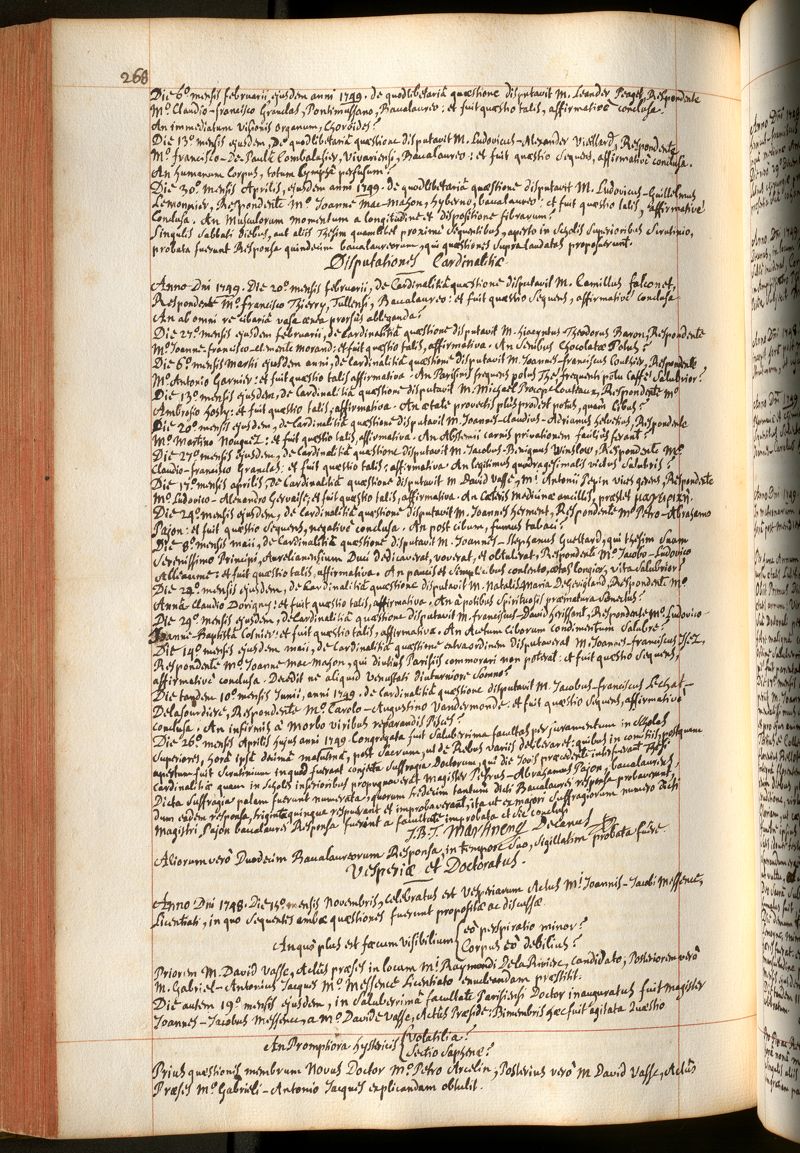 266
Die 6° mensis februarii, ejusdem anni 1749. de quodlibetariâ quæstione disputavit M. Leander Peaget, Respondente
M° Claudio-francisco Granclas, Pontimussano, Baccalaureo: et fuit quæstio talis, affirmativè conclusa.
An immediatum visionis organum, Choroides?
Die 13° mensis ejusdem, De quodlibetariâ quæstione disputavit M. Ludovicus-Alexander Vieillard, Respondente
M° francisco-De Paulâ Combalusier, Vivariensi, Baccalaureo: et fuit quæstio sequens, affirmativè conclusa.
An humanum Corpus, totum lymphâ perfusum?
Die 30° mensis Aprilis, ejusdem anni 1749. de quodlibetariâ quæstione disputavit M. Ludovicus-Guillelmus
Lemonnier, Respondente M° Joanne Mac-mahon, hyberno, baccalaureo: et fuit quæstio talis, affirmativè
Conclusa. An Musculorum momentum a longitudine et dispositione fibrarum?
Singulis Sabbati diebus, aut aliis Thesim quamlibet proximè sequentibus, aperto in Scholis Superioribus Scrutinio,
probata fuerunt Responsa quindecim baccalaureorum, qui quæstiones supra laudatas proposuerunt.
Disputationes Cardinalitiæ
Anno Dni 1749. Die 20° mensis februarii, de Cardinalitiâ quæstione disputavit M. Camillus falconet,
Respondente M° francisco Thierry, Tullensi, Baccalaureo: et fuit quæstio sequens, affirmativè conclusa
An ab omni re cibariâ vasa ænea prorsùs ableganda?
Die 27° mensis ejusdem februarii, de Cardinalitiâ quæstione disputavit M. hiacyntus Theodorus Baron, Respondente
M° Joanne-francisco-clemente morand: et fuit quæstio talis, affirmativa. An Senibus Chocolatæ Potus?
Die 6° mensis Martii ejusdem anni, de Cardinalitiâ quæstione disputavit M. Joannes-franciscus Couthier, Respondente
M° Antonio Garnier: et fuit quæstio talis affirmativa. An Parisinis frequens potus Thé frequenti potu Caffé Salubrior?
Die 13° mensis ejusdem, de Cardinalitiâ quæstione disputavit M. Michael Procope Couteaux, Respondente M°
Ambrosio hosty: et fuit quæstio talis, affirmativa. An ætate provectis plus prodest potus, quam cibus?
Die 20° mensis ejusdem, de Cardinalitiâ quæstione disputavit M. Joannes-claudius-Adrianus helvetius, Respondente
M° Martino Nouguez: et fuit quæstio talis, affirmativa. An Abstemii carnis privationem facilius ferant?
Die 27° mensis ejusdem, de Cardinalitiâ quæstione disputavit M. Jacobus-Benignus Winslow, Respondente M°
Claudio-francisco Granclas: et fuit quæstio talis, affirmativa. An legitimus quadragesimalis victus Salubris?
Die 17° mensis aprilis, De Cardinalitiâ quæstione disputavit m. David Vasse, M' Antonii Pepin vices gerens, Respondente
M° Ludovico-Alexandro Gervaise; et fuit quæstio talis, affirmativa. An Cæteris Medicinæ ancillis, præstet
Die 24° mensis ejusdem, de Cardinalitiâ quæstione disputavit M. Joannes herment, Respondente M° Petro-Abrahamo
Pajon: et fuit quæstio Sequens, negativè conclusa. An post cibum, fumus tabaci?
Die 8° mensis maii, de Cardinalitiâ quæstione disputavit M. Joannes-Stephanus Guettard, qui thesim Suam
Serenissimo Principi, Aurelianensium Duci dedicaverat, voverat, et obtulerat, Respondente M° Jacobo-Ludovico
Alleaume: et fuit quæstio talis, affirmativa. An paucis et simplicibus contento, ætas longior, vita Salubrior?
Die 22° mensis ejusdem, de Cardinalitiâ quæstione disputavit M. Natalis Maria De Gevigland, Respondente M°
Annâ Claudio Dorigny: et fuit quæstio talis, affirmativa. An à potibus Spirituosis præmatura Senectus?
Die 29° mensis ejusdem, de Cardinalitiâ quæstione disputavit M. franciscus-David herissant, Respondente M° Ludovico-
Joanne-Baptista Cosnier: et fuit quæstio talis, affirmativa. An Acetum Ciborum condimentum Salubre?
Die 14° mensis ejusdem maii, de Cardinalitiâ quæstione extraordinem disputaverat M. Joannes-franciscus Isez,
Respondente M° Joanne Mac-mahon, qui diutius Parisiis commorari non poterat: et fuit quæstio Sequens,
affirmativè conclusa. Decedit ne aliquid venustati diuturniore Somno?
Die tandem 10° mensis Junii, anni 1749. de Cardinalitiâ quæstione disputavit M. Jacobus-franciscus Lechat-
Delasourdiere, Respondente M° Carolo-Augustino Vandermonde: et fuit quæstio sequens, affirmativè
conclusa. An infirmis à Morbo viribus reparandis Pisces?
Die 26° mensis Aprilis hujus anni 1749. Congregata fuit Saluberrima facultas per juramentum in Scholis
Superiores, horâ ipsâ decimâ matutinâ, post Sacrum, ut de Rebus variis deliberaret: quibus in comitiis, postquam
apertum fuit Scrutinium in quod fuerant conjecta Suffragia Doctorum, qui die Jovis præcedente interfuerant Thesi
Cardinalitiæ quam in Scholis inferioribus propugnaverat Magister Petrus-Abrahamus Pajon, baccalaureus,
Dicta Suffragia palam fuerunt numerata, quorum Sedecim tantum dicti Baccalaurei responsa probaverunt,
dum eadem responsa, triginta quinque respuerunt et improbaverunt, ita ut ex majori Suffragiorum numero Dicti
Magistri Pajon baccalaurei Responsa fuerint a facultate improbata et sic conclusi
J.B.T. Martinenq Decanus
Aliorum verò Duodecim Baccalaureorum Responsa, in tempore suo, sigillatim probata fuere
Vesperiæ et Doctoratus.
Anno Dni 1748. Die 15° mensis Novembris, celebratus est Vesperiarum Actus M' Joannis-Jacobi Messence,
Licentiati, in quo Sequentes ambæ quæstiones fuerunt propositæ ac discussæ
An quò plus est fæcum visibilium { eò perspiratio minor?
Corpus eò debilius?
Priorem M. David Vasse, Actûs præses in locum M' Raymondi De la Riviere, candidato, Posteriorem verò
M. Gabriel-Antonius Jacques M° Messence Licentiato enucleandam præstitit.
Die autem 19° mensis ejusdem, in Saluberrimâ facultate Parisiensi Doctor inauguratus fuit Magister
Joannes-Jacobus Messence, a M° Davide Vasse, Actûs Præside: Bimembris hæc fuit agitata Quæstio
An Promptiora hystericis { Volatilia?
Sectio Saphenæ?
Prius quæstionis membrum Novus Doctor M° Petro Arcelin, Posterius verò M David Vasse, Actûs
Præses M° Gabrieli-Antonio Jacques explicandam obtulit.